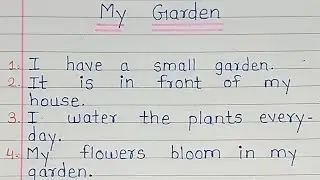 My Garden
1. I have a small garden.
2. It is in front of my
house.
3. I water the plants every-
day.
4. My flowers bloom in my
garden.